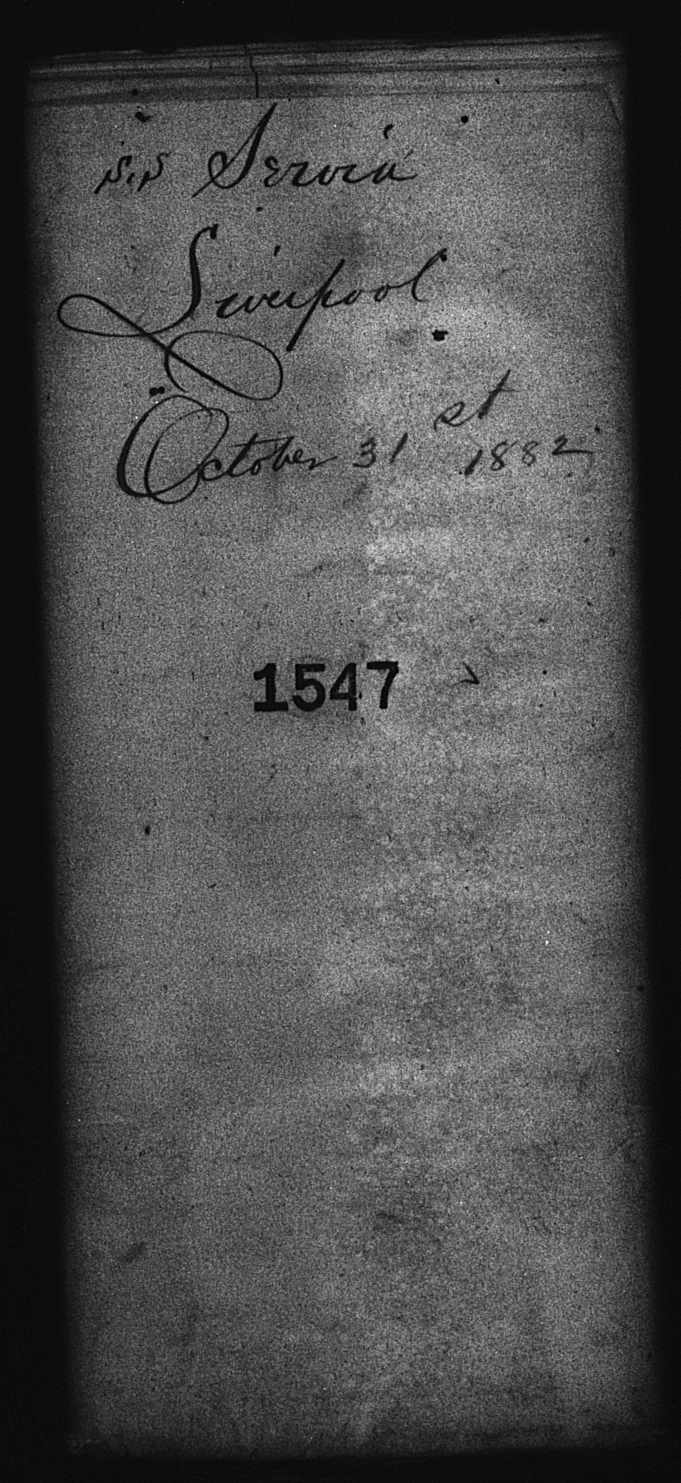 S.S Servia
Liverpool
October 31st 1882
1547